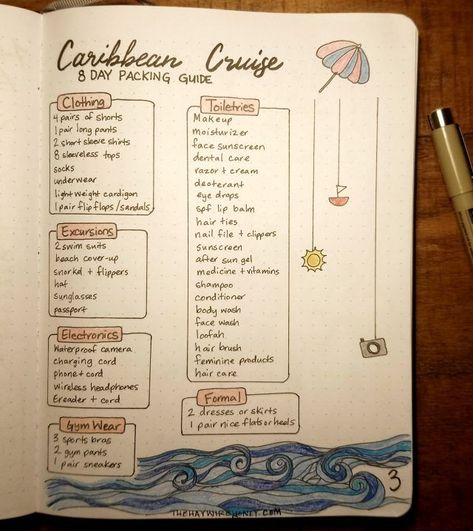 Caribbean Cruise
8 DAY PACKING GUIDE
Clothing
4 pairs of shorts
1 pair long pants
2 short sleeve shirts
8 sleeveless tops
socks
underwear
light weight cardigan
1 pair flip flops/sandals
Excursions
2 swim suits
beach cover-up
snorkel + flippers
hat
sunglasses
passport
Electronics
Waterproof camera
charging cord
phone + cord
wireless headphones
Ereader + cord
Gym Wear
3 sports bras
2 gym pants
1 pair sneakers
Toiletries
Makeup
moisturizer
face sunscreen
dental care
razor + cream
deoterant
eye drops
spf lip balm
hair ties
nail file + clippers
sunscreen
after sun gel
medicine + vitamins
shampoo
conditioner
body wash
face wash
loofah
hair brush
feminine products
hair care
Formal
2 dresses or skirts
1 pair nice flats or heels
3